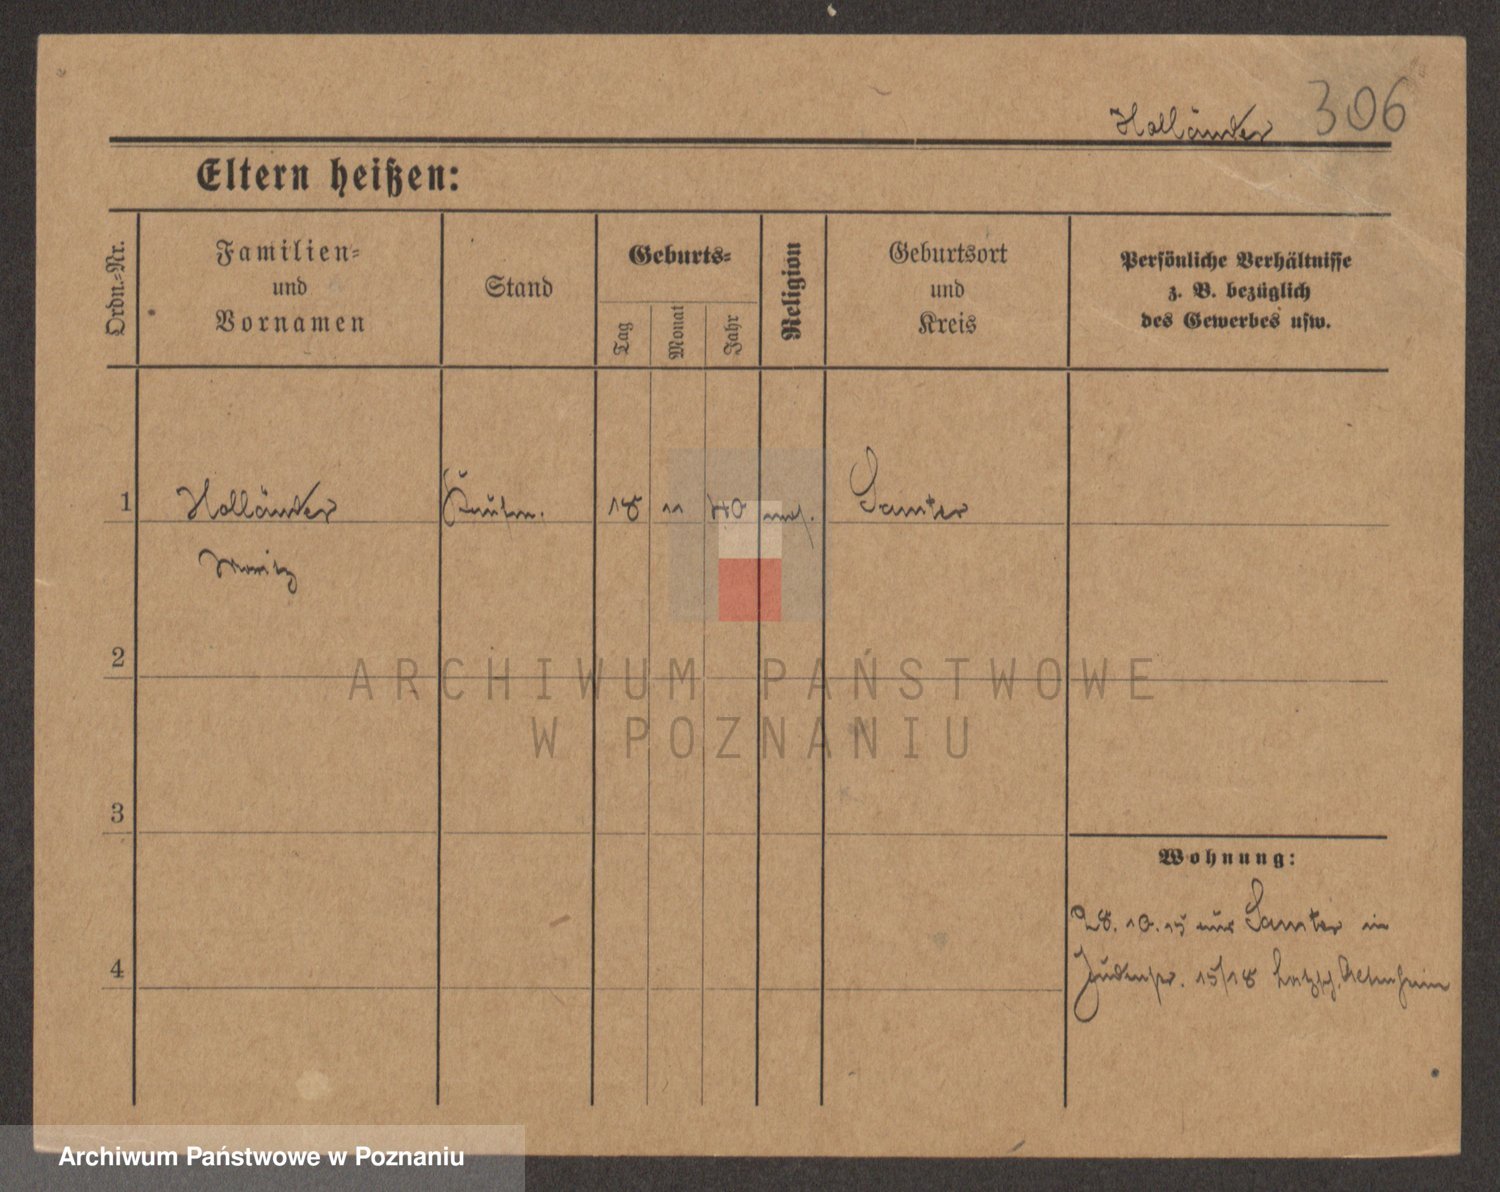 Holländer 306
Eltern heißen:
Ordn.-Nr.
Familien-
und
Vornamen
Stand
Geburts-
Tag
Monat
Jahr
Religion
Geburtsort
und
Kreis
Persönliche Verhältnisse
z. B. bezüglich
des Gewerbes usw.
1 Holländer Kaufm. 18 11 40 mos. Samter
Moritz
2
3
4
Wohnung:
28. 10. 15 aus Samter in
Judenstr. 15/18 Latzsch. Altenheim
ARCHIWUM PAŃSTWOWE
W POZNANIU
Archiwum Państwowe w Poznaniu